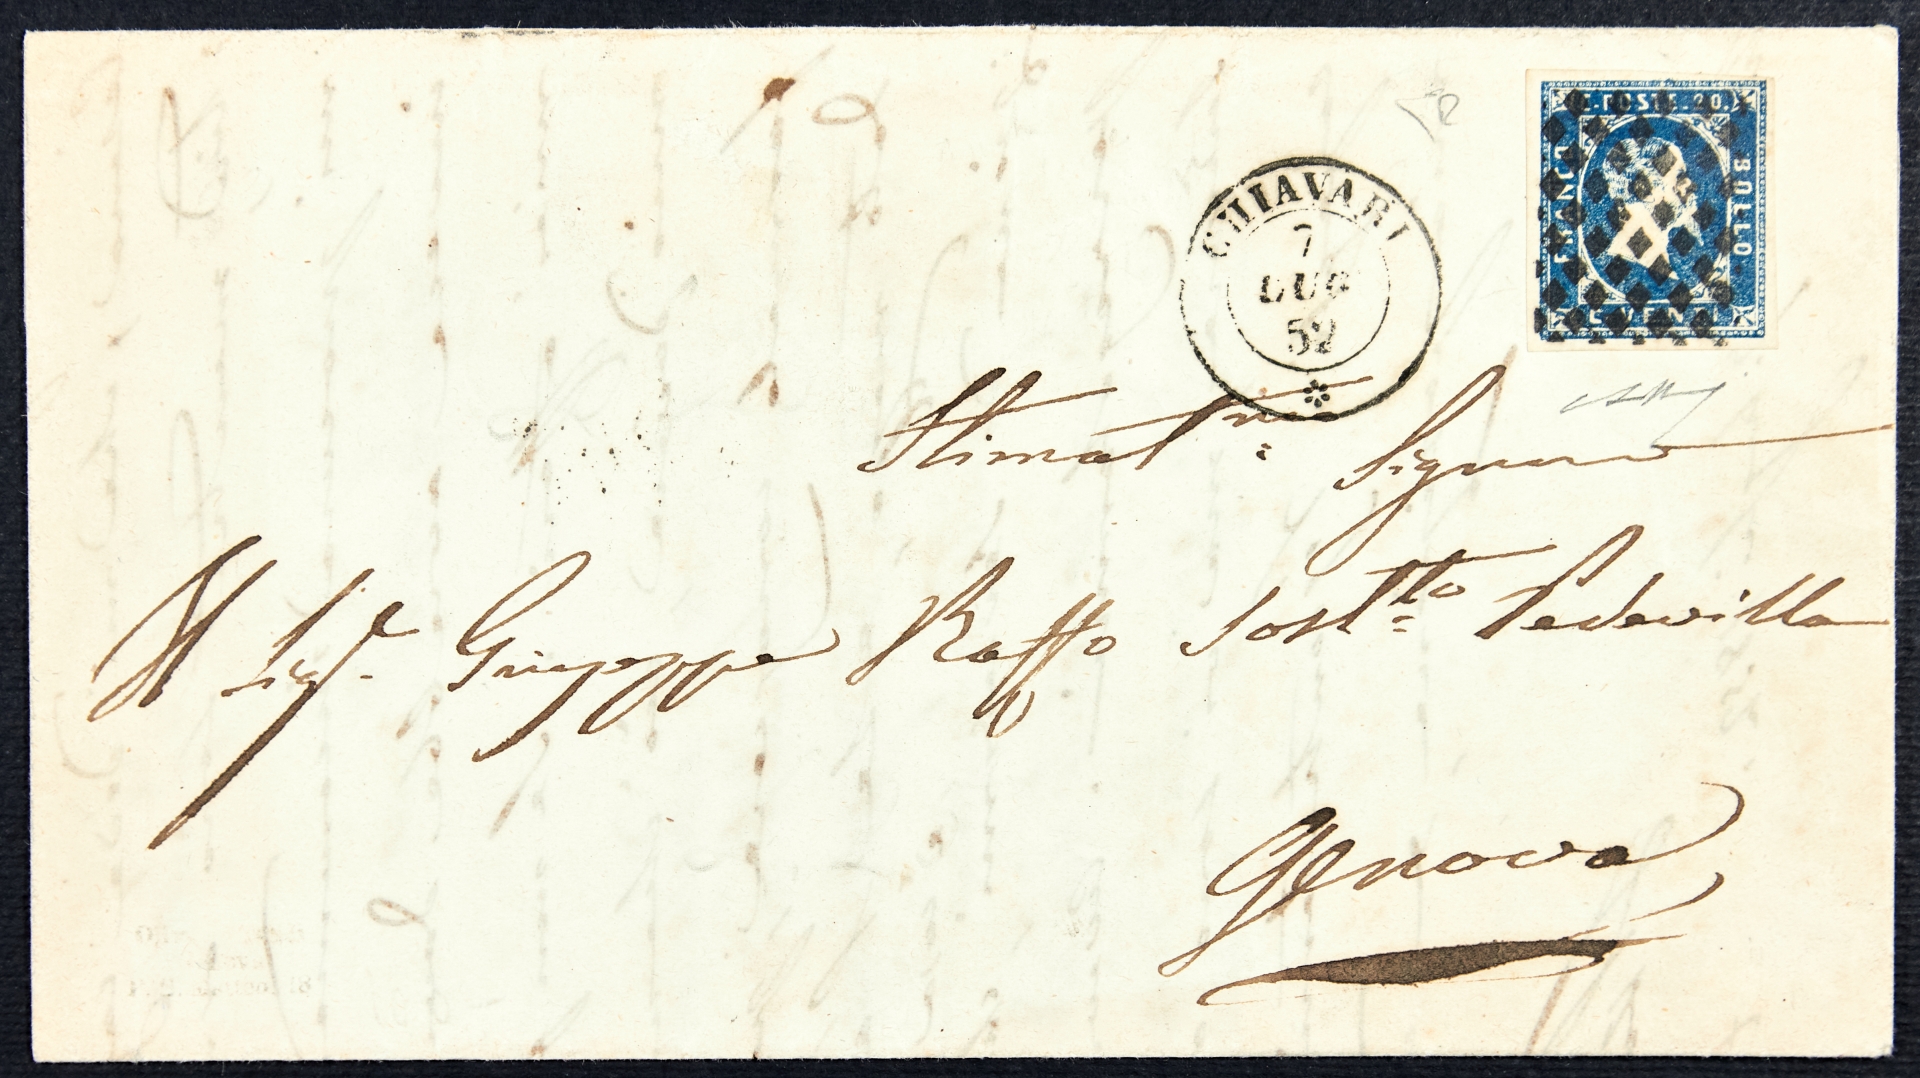 C. POSTE. 20.
FRANCO
BOLLO
C. VENTI
CHIAVARI
7
LUG
52
Stimat.mo Signore
Il Sig.r Giuseppe Raffo Sost.tto Pedevilla
Genova